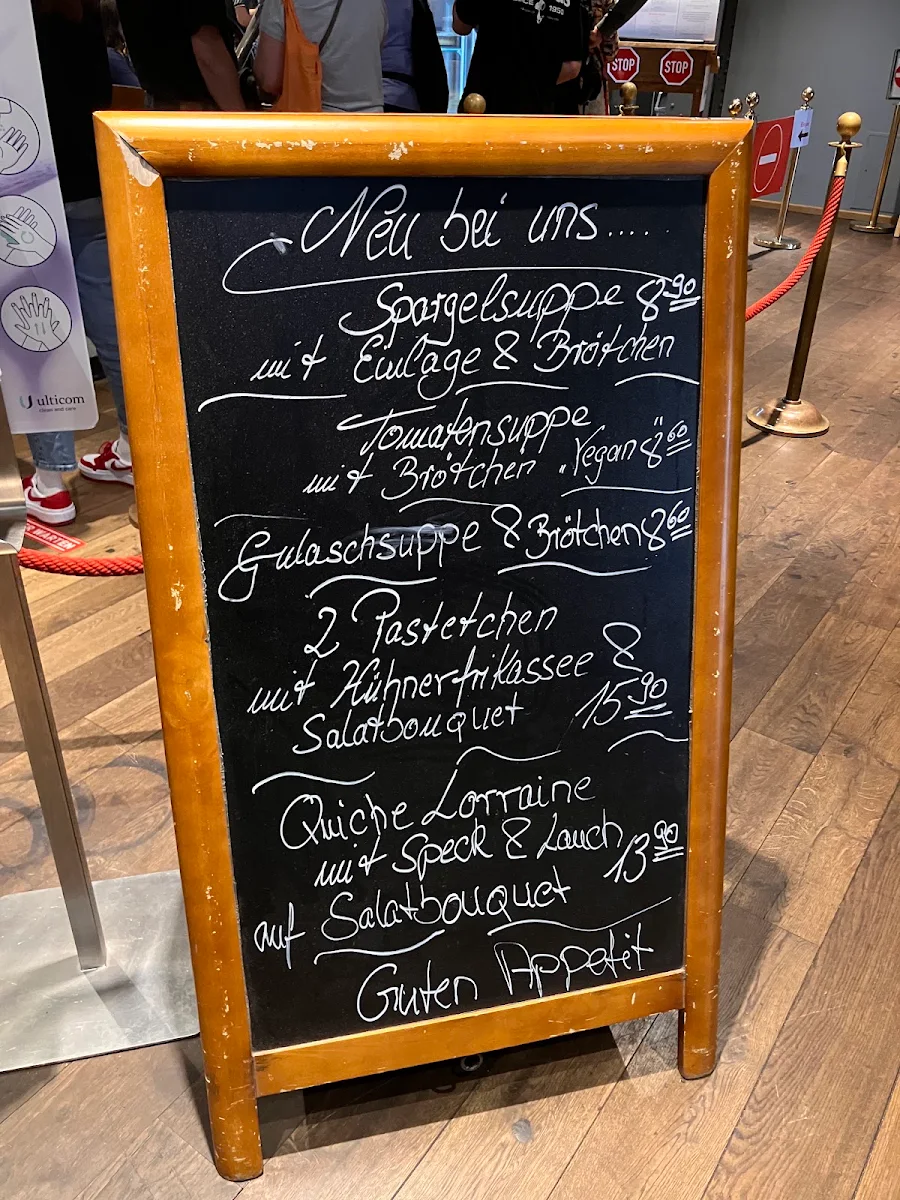 STOP
STOP
Neu bei uns.....
Spargelsuppe 8.90
mit Einlage & Brötchen
Tomatensuppe
mit Brötchen "Vegan" 8.60
Gulaschsuppe & Brötchen 8.60
2 Pastetchen
mit Hühnerfrikassee &
Salatbouquet 15.90
Quiche Lorraine
mit Speck & Lauch 13.90
auf Salatbouquet
Guten Appetit
ulticom
clean and care
R WARTEN
1950